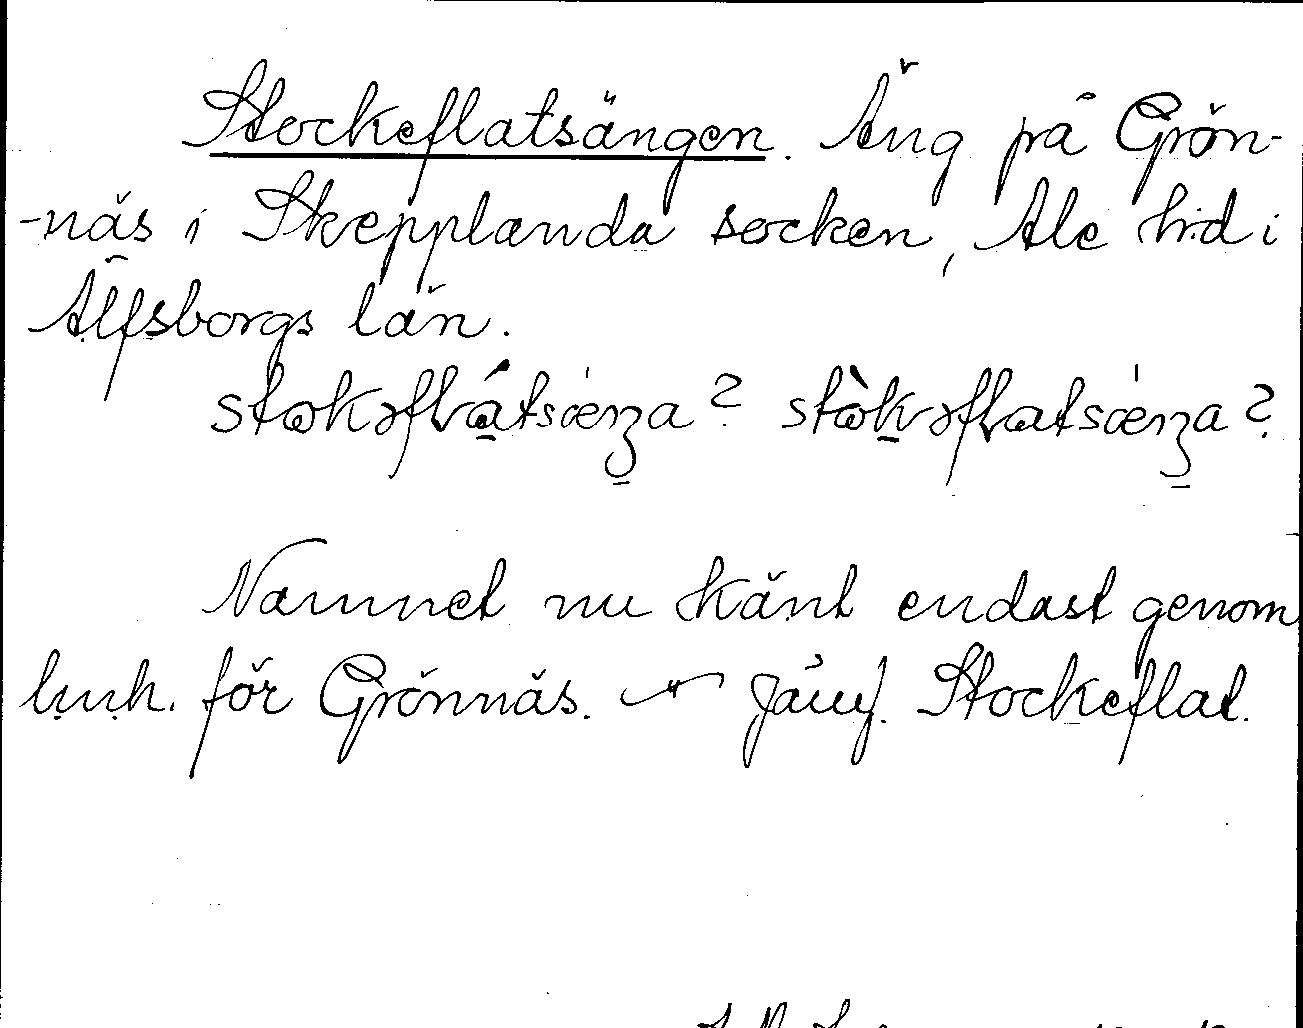 Stockeflatsängen. Äng på Grön-
-näs i Skepplanda socken, Ale hd i
Älfsborgs län.
Namnet nu känt endast genom
lmh. för Grönnäs. — Jämf. Stockeflat.